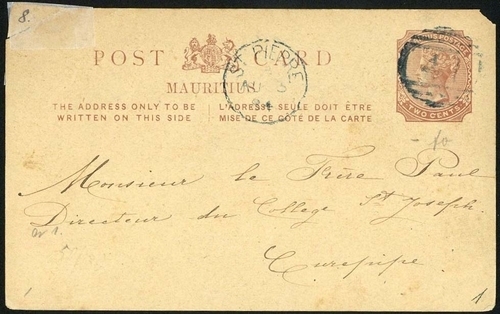 8.
POST CARD
MAURITIUS
THE ADDRESS ONLY TO BE
WRITTEN ON THIS SIDE
L'ADRESSE SEULE DOIT ÊTRE
MISE DE CE COTÉ DE LA CARTE
ST PIERRE
AU 3
84
POSTAGE
TWO CENTS
Monsieur le Frère Paul
Directeur du College St Joseph
Curepipe
1